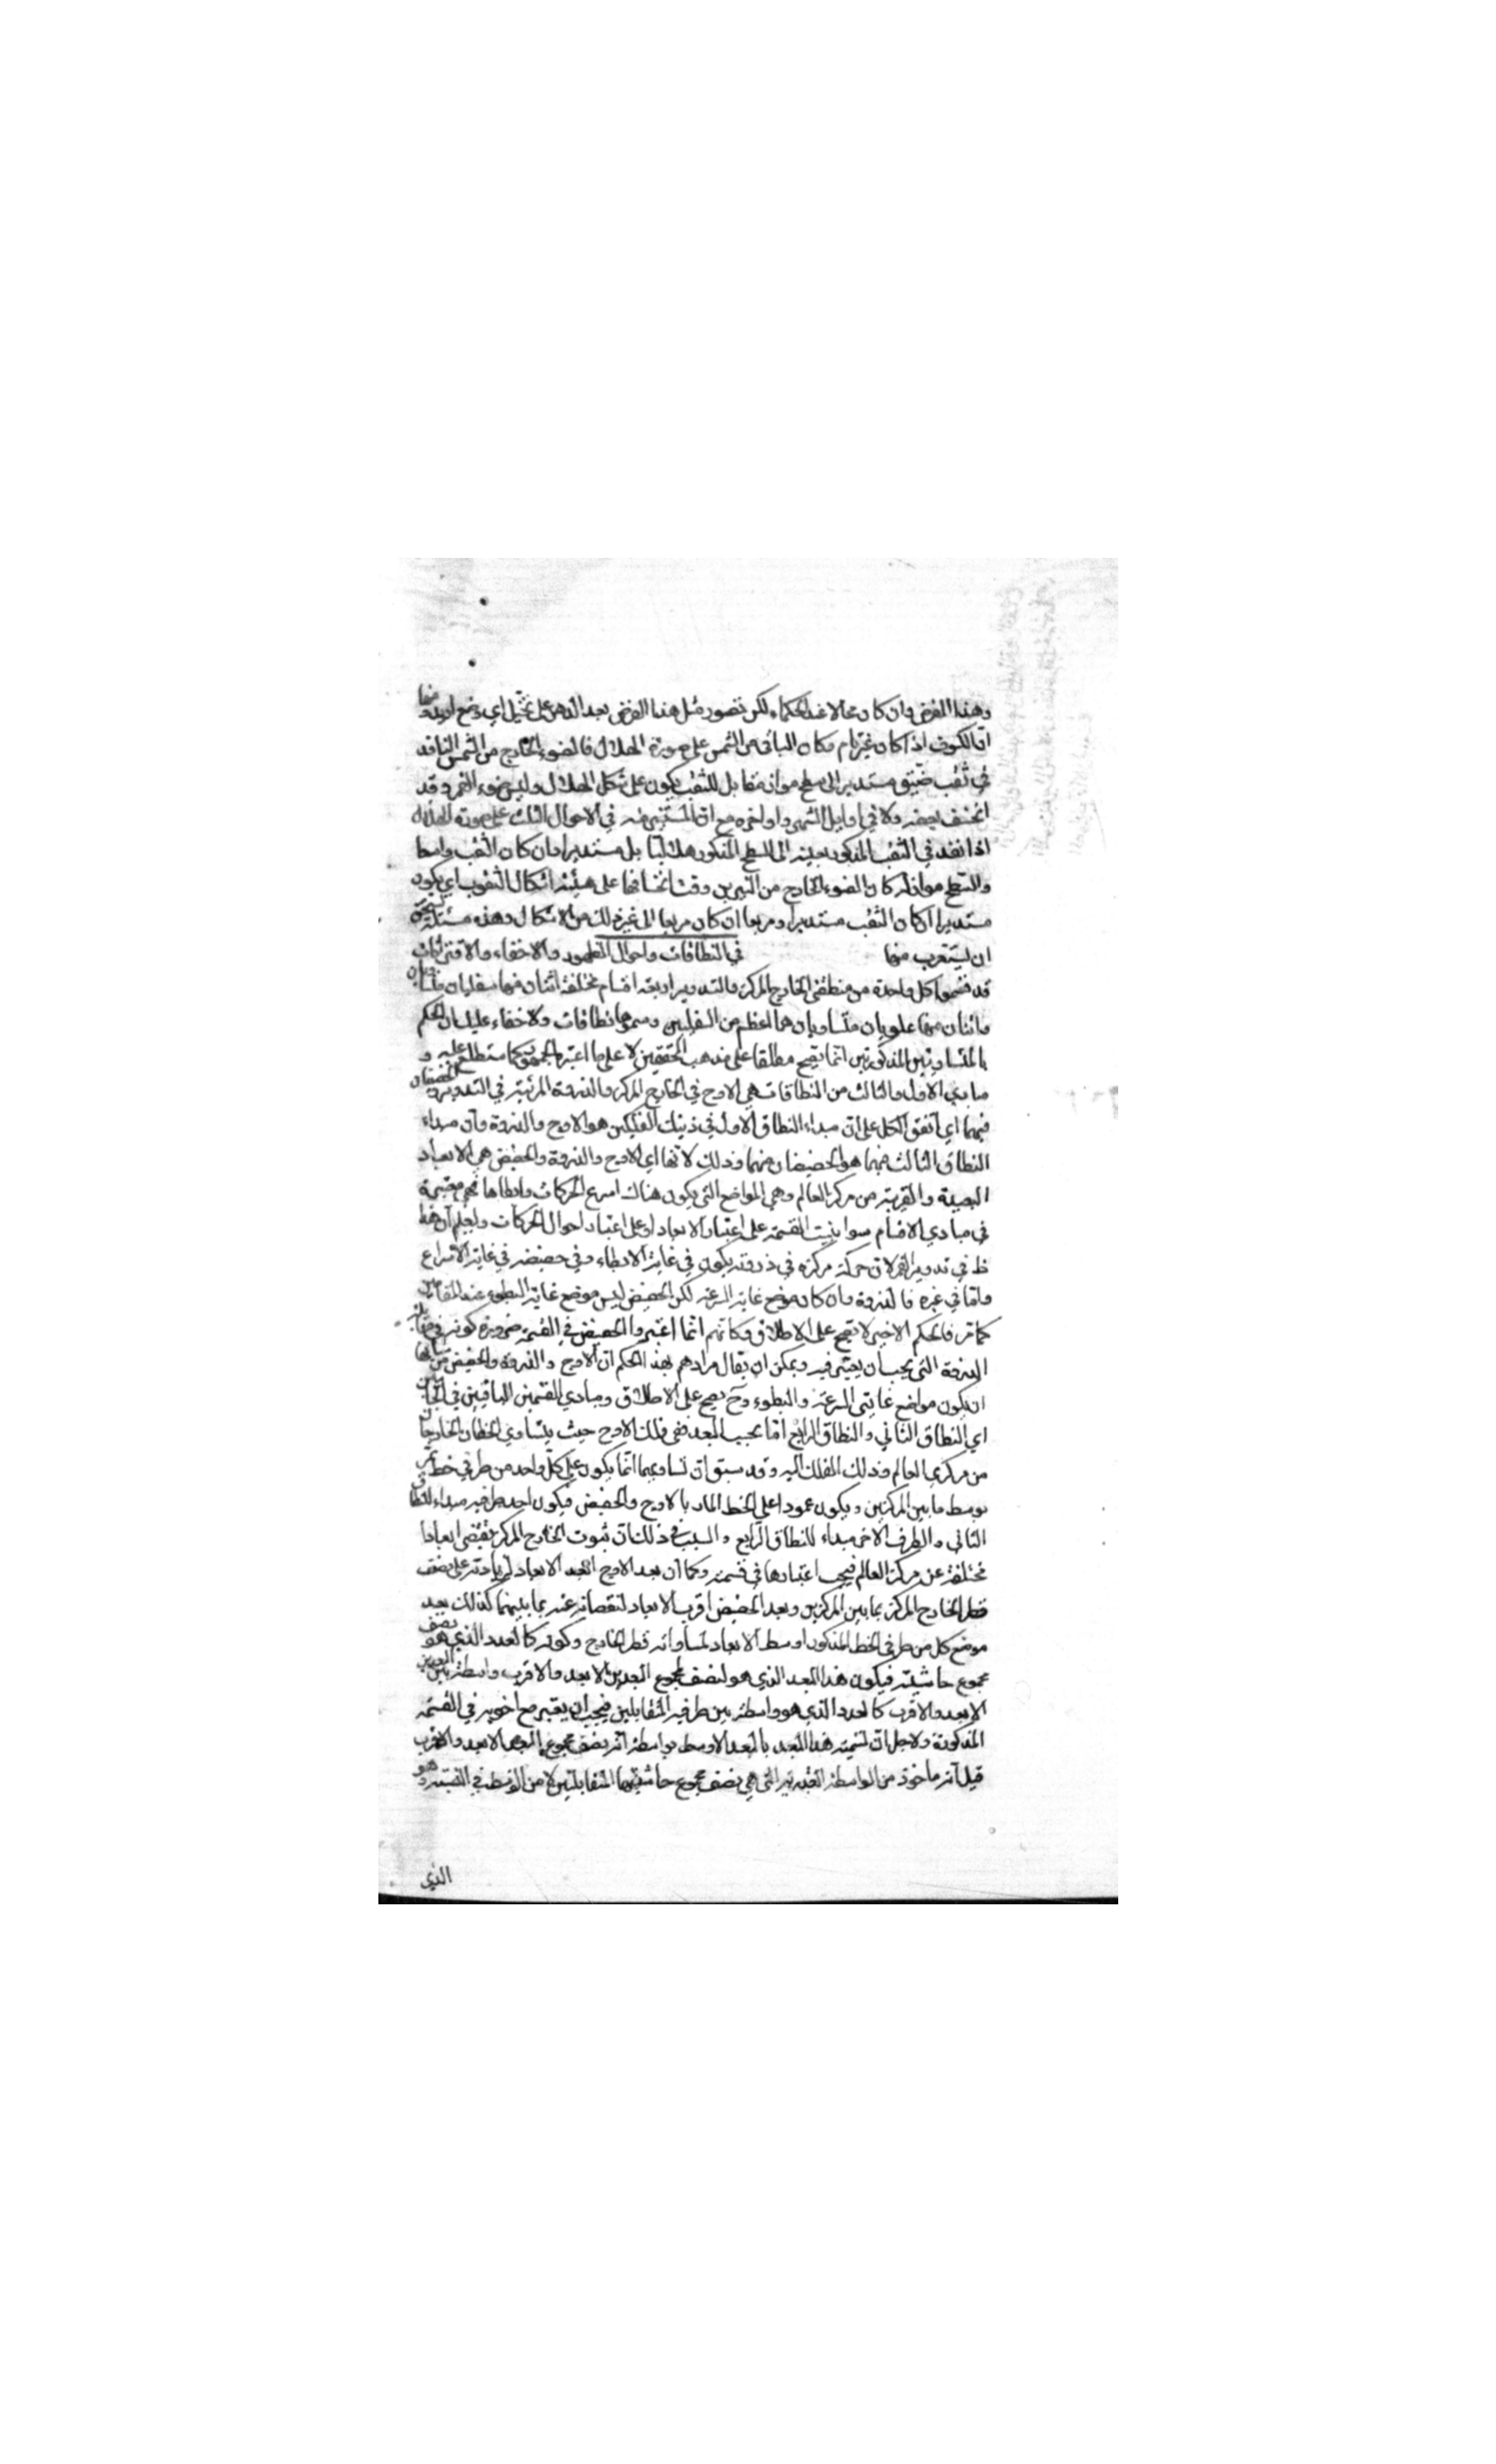 وهذا الفرض وان كان محالا عند الحكماء لكن تصور مثل هذا الفرض بعد الذهن على تخيل اي وضع اريد منها
ان الكسوف اذا كان غير تام وكان الباقي من الشمس على صورة الهلال فالضوء الخارج من الشمس النافد
في ثقب ضيق مستدير الى سطح مواز مقابل للثقب يكون على شكل الهلال وليس ضوء القمر وقد
انخسف بعضه ولا في اوايل الشهر واواخره مع ان المستنير منه في الاحوال الثلث على صورة الهلال
اذا نفذ في الثقب المذكور بعينه الى السطح المذكور هلاليا بل مستديرا وان كان الثقب واسعا
والسطح موازله كان الضوء الخارج من النيرين وقت انخسافها على هيئة اشكال الثقوب اي يكون
مستديرا ان كان الثقب مستديرا ومربعا ان كان مربعا الى غير ذلك من الاشكال وهذه مسئلة
ان يستغرب منها في النطاقات واحوال الظهور والاخفاء والاقترانات
قد قسموا كل واحدة من منطقتي الخارج المركز والتدوير اربعة اقسام مختلفة اثنان منها سفليان متساويان
واثنان منها علويان متساويان هما اعظم من السفليين وسموها نطاقات ولا خفاء عليك ان الحكم
بالمتساويين المذكورين انما يصح مطلقا على مذهب المحققين لا على ما اعتبره الجمهور كما ستطلع عليه و
مبادي الاول والثالث من النطاقات هي الاوج في الخارج المركز والذروة المرئية في التدوير والحضيضان
فيهما اي اتفق الكل على ان مبداء النطاق الاول في ذينك الفلكين هو الاوج والذروة وان مبداء
النطاق الثالث فيهما هو الحضيضان منهما وذلك لانها اي الاوج والذروة والحضيض هي الابعاد
البعيدة والقريبة من مركز العالم وهي المواضع التي يكون هناك اسرع الحركات وابطاها فهي معتبرة
في مبادي الاقسام سوا بنيت القسمة على اعتبار الابعاد او على اعتبار احوال الحركات وليعلم ان هذا
ظ في تدوير القمر لان حركة مركزه في ذروته يكون في غاية الابطاء وفي حضيضه في غاية الاسراع
واما في غيره فالذروة وان كان موضع غاية السرعة لكن الحضيض ليس موضع غاية البطوء عند المقامين
كما مر فالحكم الاخير لا يصح على الاطلاق وكانهم انما اعتبروا الحضيض في القسمة ضرورة كونه في مقابلة
الذروة التي يجب ان يعتبر فيه ويمكن ان يقال مرادهم بهذا الحكم ان الاوج والذروة والحضيض من شانها
ان يكون مواضع غايتي السرعة والبطوء وح يصح على الاطلاق ومبادي القسمين الباقيين في الجانبين
اي النطاق الثاني والنطاق الرابع اما بحسب البعد ففي فلك الاوج حيث يتساوي الخطان الخارجان
من مركزي العالم وذلك الفلك اليه وقد سبق ان تساويهما انما يكون على كل واحد من طرفي خط يمر
بوسط ما بين المركزين ويكون عمودا على الخط المار بالاوج والحضيض فيكون احد طرفيه مبداء للنطاق
الثاني والطرف الاخر مبداء للنطاق الرابع والسبب في ذلك ان ثبوت الخارج المركز يقتضي ابعادا
مختلفة عن مركز العالم فيجب اعتبارها في قسمته وكما ان بعد الاوج ابعد الابعاد لزيادته على نصف
قطر الخارج المركز بما بين المركزين وبعد الحضيض اقرب الابعاد لنقصانه عنه بما بينهما كذلك بعد
موضع كل من طرفي الخط المذكور اوسط الابعاد لمساواته قطر الخارج وكونه كالعدد الذي هو نصف
مجموع حاشيتيه فيكون هذا البعد الذي هو نصف مجموع البعدين الابعد والاقرب واسطة بين البعدين
الابعد والاقرب كالعدد الذي هو واسطة بين طرفيه المتقابلين فيجب ان يعتبر مع اخويه في القسمة
المذكورة ولاجل ان تسمية هذا البعد بالبعد الاوسط بواسطة انه نصف مجموع البعد الابعد والاقرب
قيل انه ماخوذ من الواسطة العددية التي هي نصف مجموع حاشيتيها المتقابلتين لا من الوسط في النسبة وهو
الذي